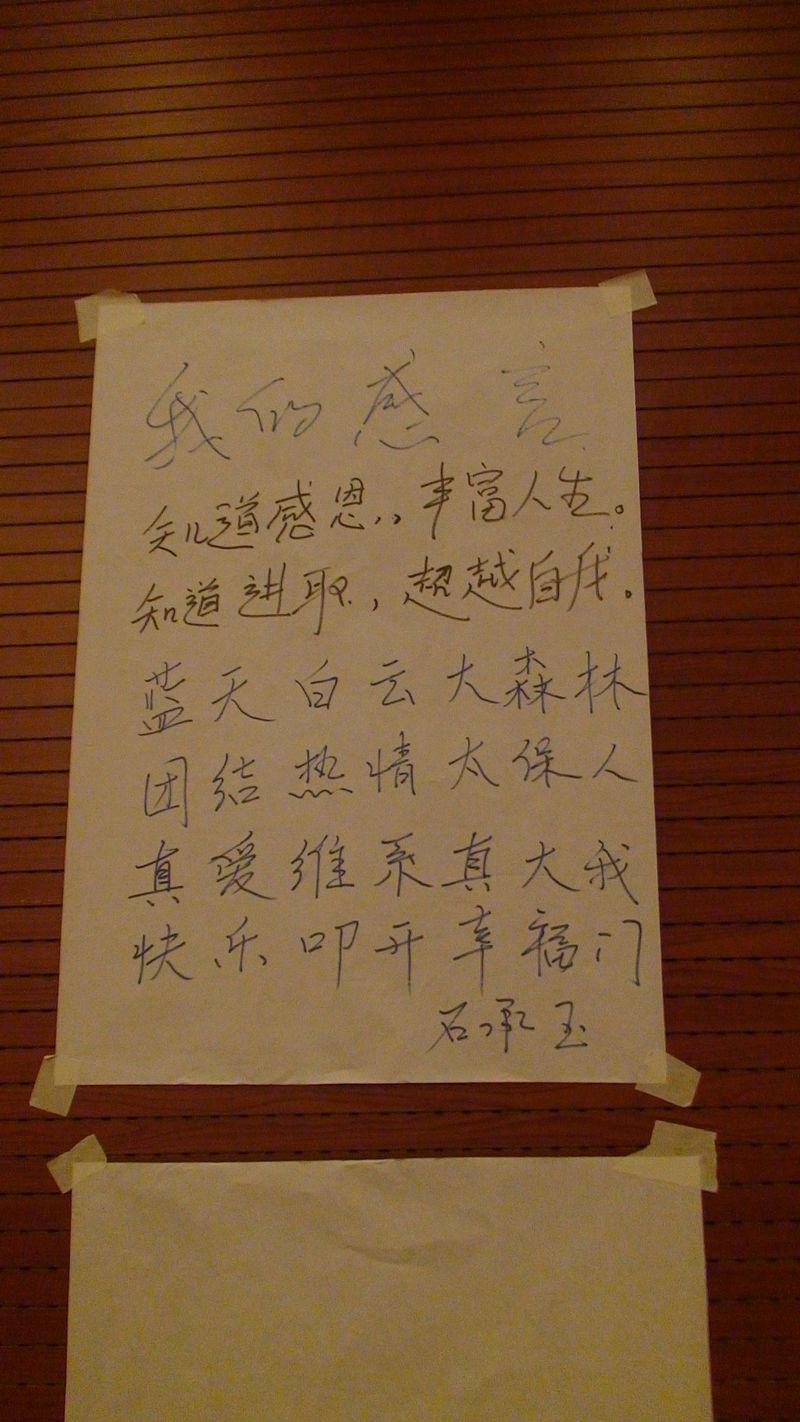 我的感言
知道感恩,,丰富人生。
知道进取,超越自我。
蓝天白云大森林
团结热情太保人
真爱维系真大我
快乐叩开幸福门
石承玉